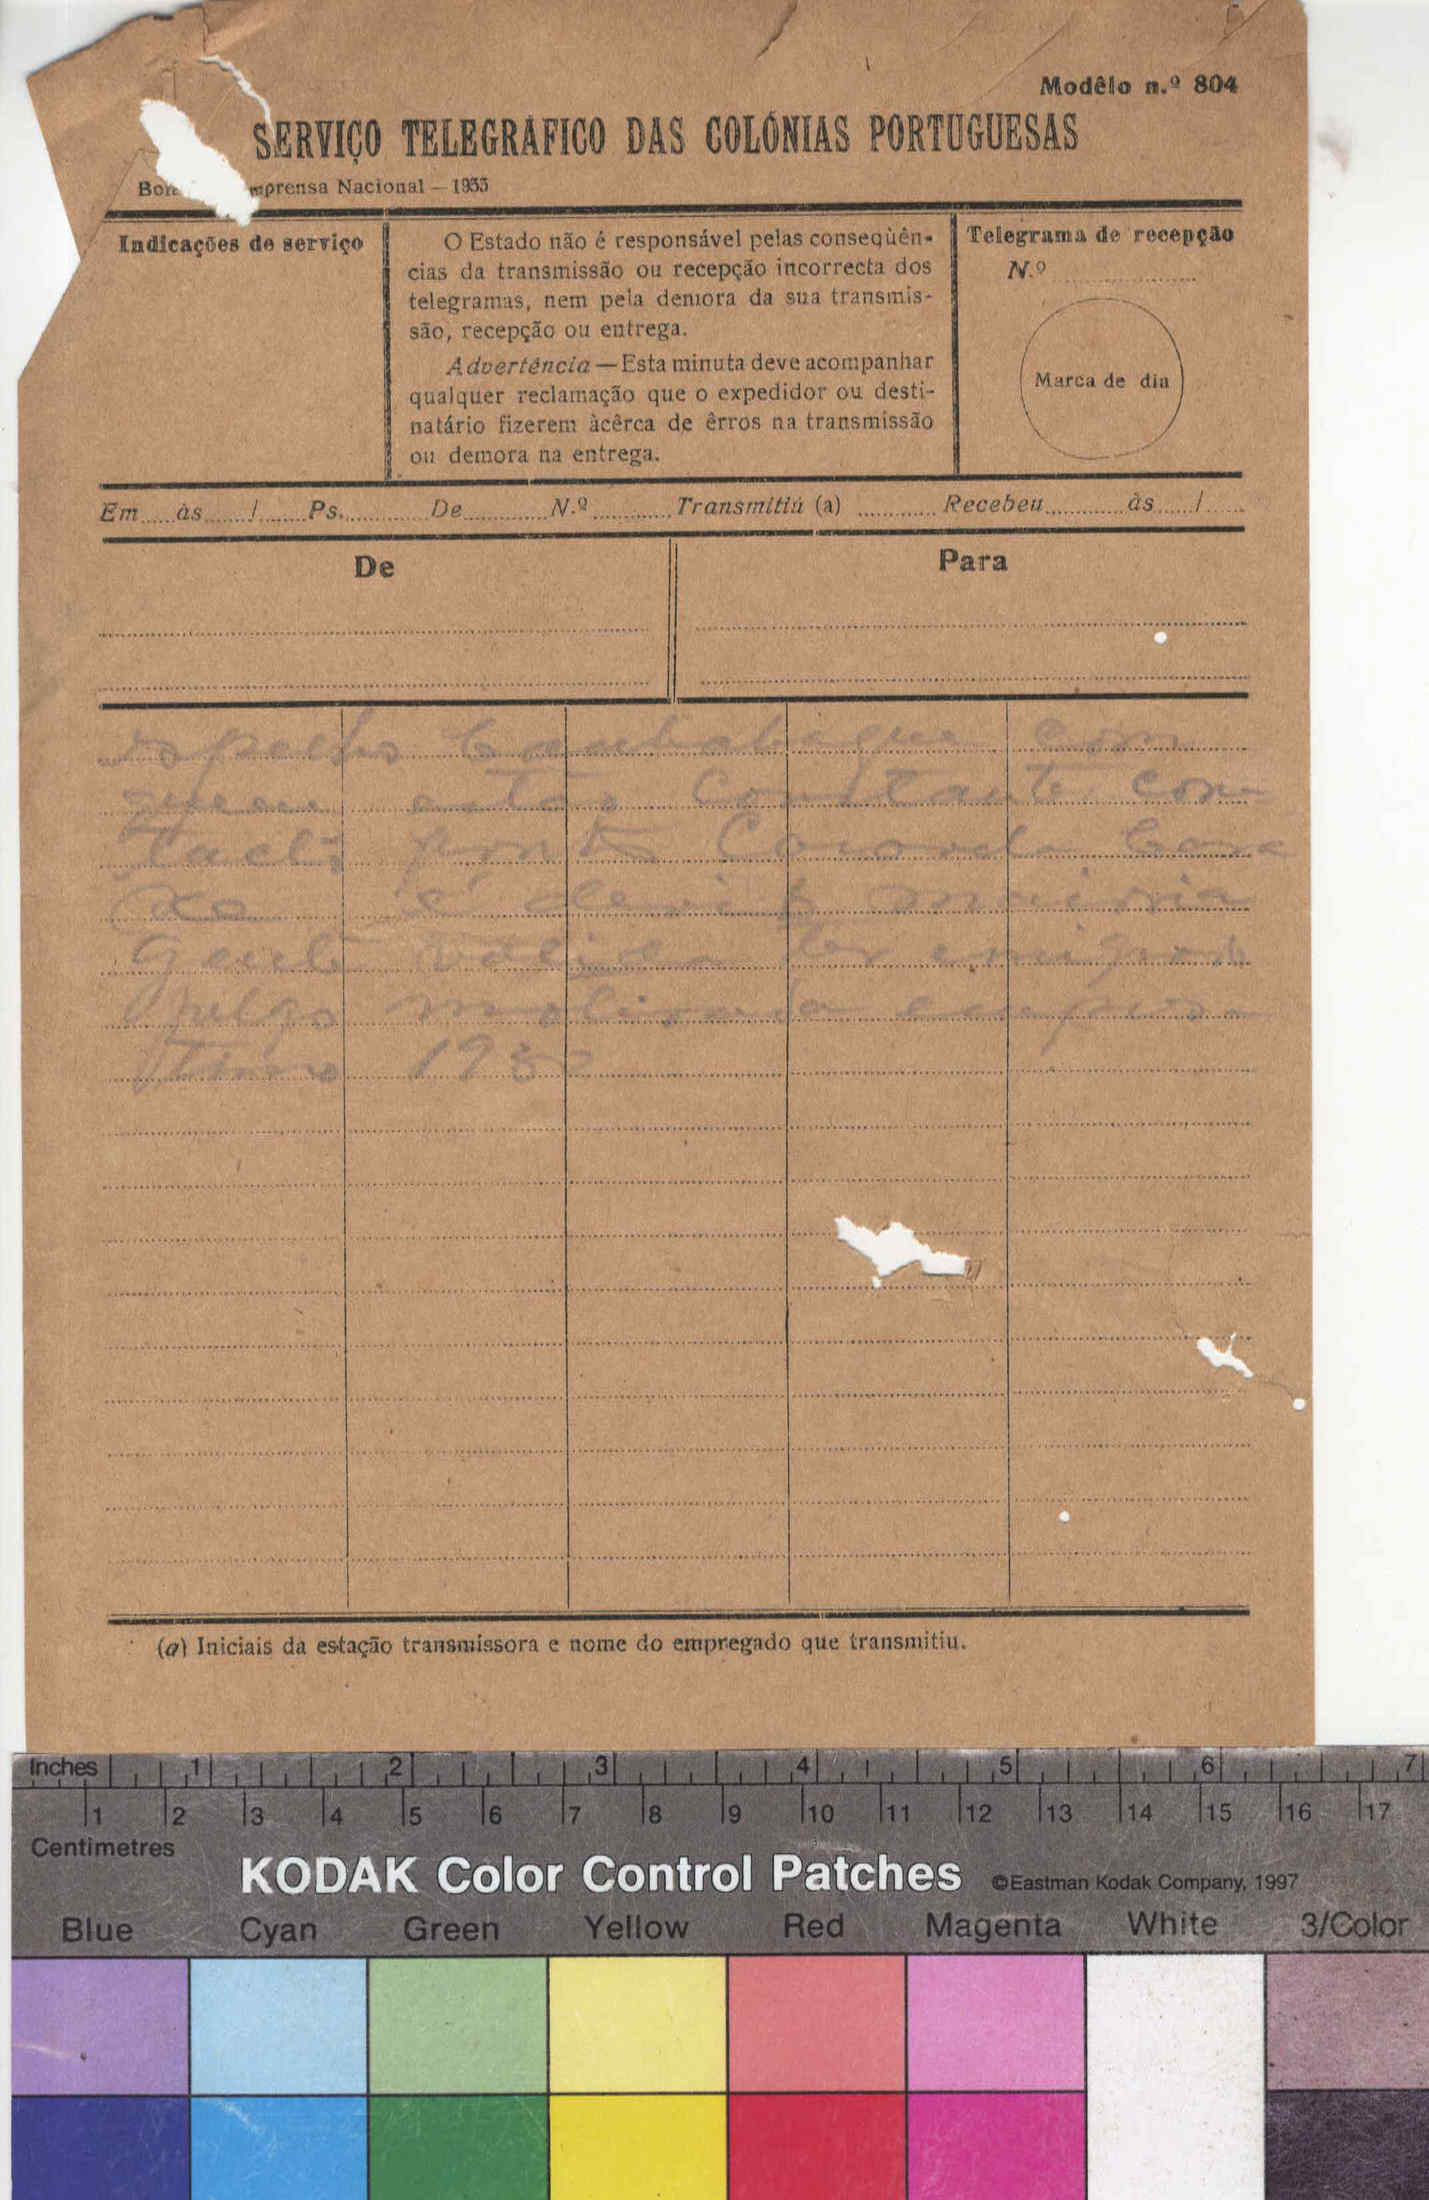 Modêlo n.º 804
SERVIÇO TELEGRÁFICO DAS COLÓNIAS PORTUGUESAS
Imprensa Nacional — 1933
Indicações de serviço
O Estado não é responsável pelas conseqüên-
cias da transmissão ou recepção incorrecta dos
telegramas, nem pela demora da sua transmis-
são, recepção ou entrega.
Advertência — Esta minuta deve acompanhar
qualquer reclamação que o expedidor ou desti-
natário fizerem àcêrca de êrros na transmissão
ou demora na entrega.
Telegrama de recepção
N.º
Marca de dia
Em às / Ps. De N.º Transmitiu (a) Recebeu às /
De
Para
com
quem estão constante con
tacto ponto
é devip maioria
gente válida ter
motivada
1930
(a) Iniciais da estação transmissora e nome do empregado que transmitiu.
Inches 1 2 3 4 5 6 7
1 2 3 4 5 6 7 8 9 10 11 12 13 14 15 16 17
Centimetres
KODAK Color Control Patches ©Eastman Kodak Company, 1997
Blue Cyan Green Yellow Red Magenta White 3/Color